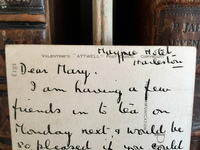 Magpie Hotel
Harleston
VALENTINE'S "ATTWELL" POST
Dear Mary.
I am having a few
friends in to tea on
Monday next & would be
so pleased if you could